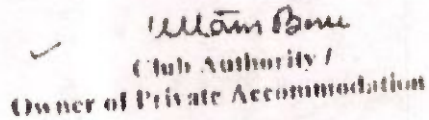 Club Authority /
Owner of Private Accommodation